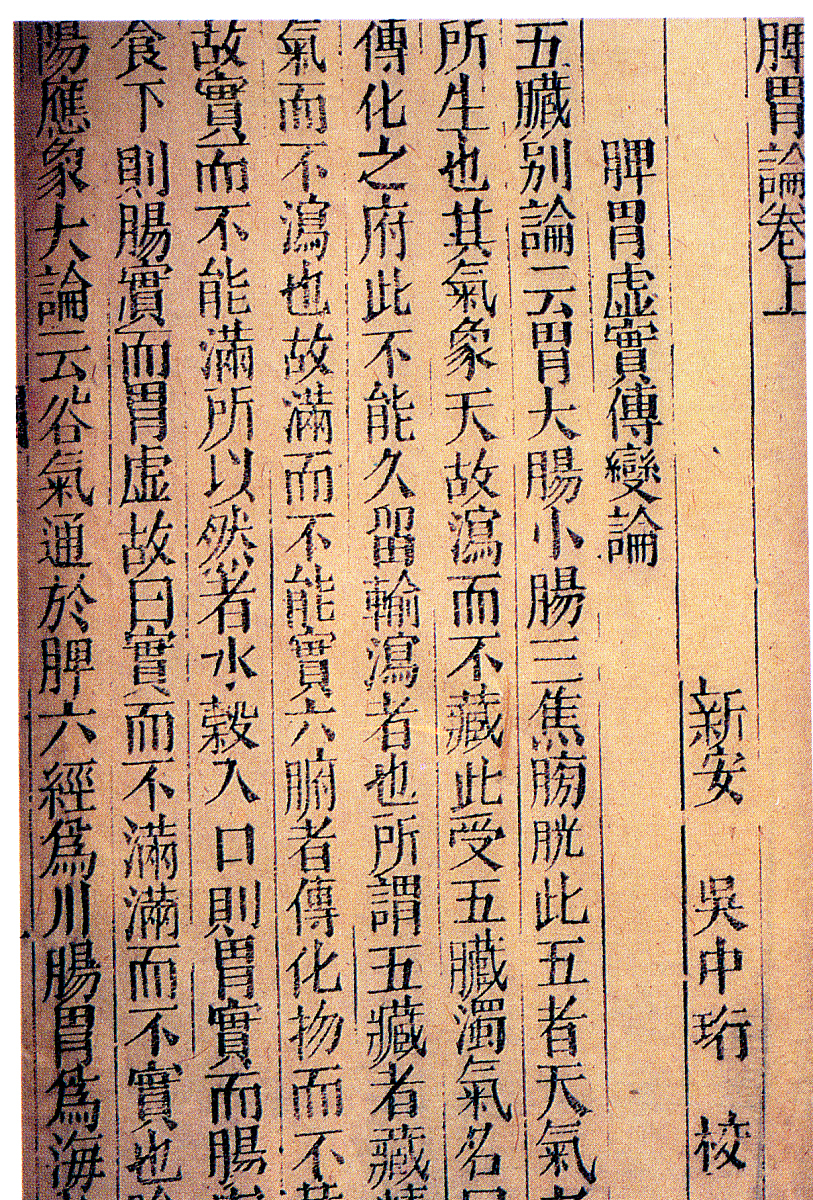 脾胃論卷上
新安 吳中珩 校
脾胃虚實傳變論
五臟別論云胃大腸小腸三焦膀胱此五者天氣
所生也其氣象天故瀉而不藏此受五臟濁氣名
傳化之府此不能久留輸瀉者也所謂五藏者藏
氣而不瀉也故滿而不能實六腑者傳化物而不
故實而不能滿所以然者水穀入口則胃實而腸
食下則腸實而胃虚故曰實而不滿滿而不實也
陽應象大論云谷氣通於脾六經爲川腸胃爲海